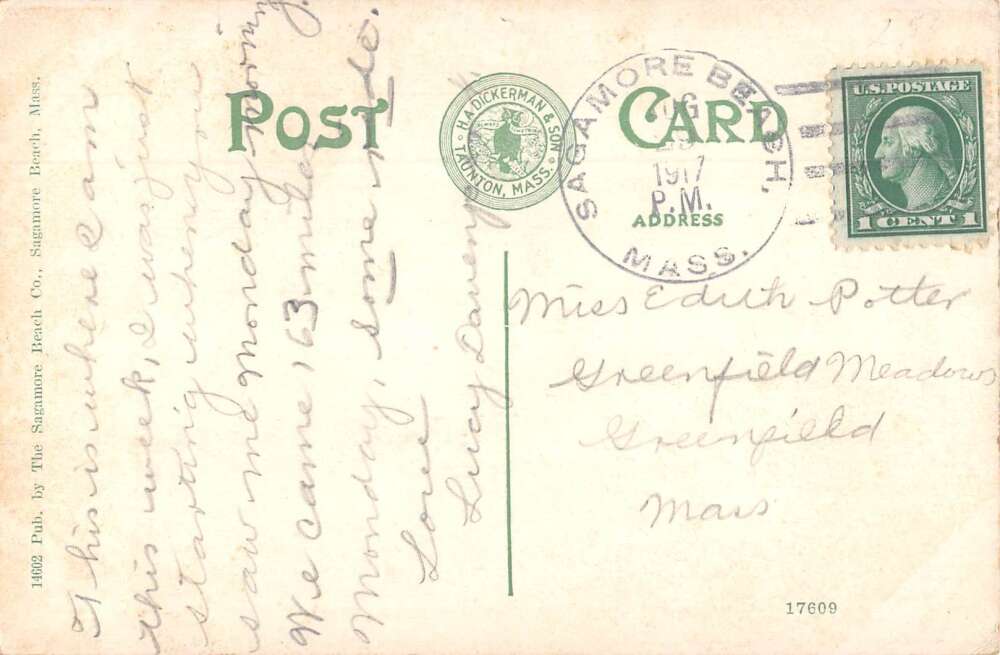 14602 Pub. by The Sagamore Beach Co., Sagamore Beach, Mass.
This is where I am
this week, I was just
starting when you
saw me Monday morning.
We came 163 miles
Monday, some ride.
Love
Lucy
POST CARD
H.A. DICKERMAN & SON
TAUNTON, MASS.
SAGAMORE BEACH,
1917
P.M.
MASS.
U.S. POSTAGE
1 CENT 1
ADDRESS
Miss Edith Potter
Greenfield Meadows
Greenfield
Mass
17609